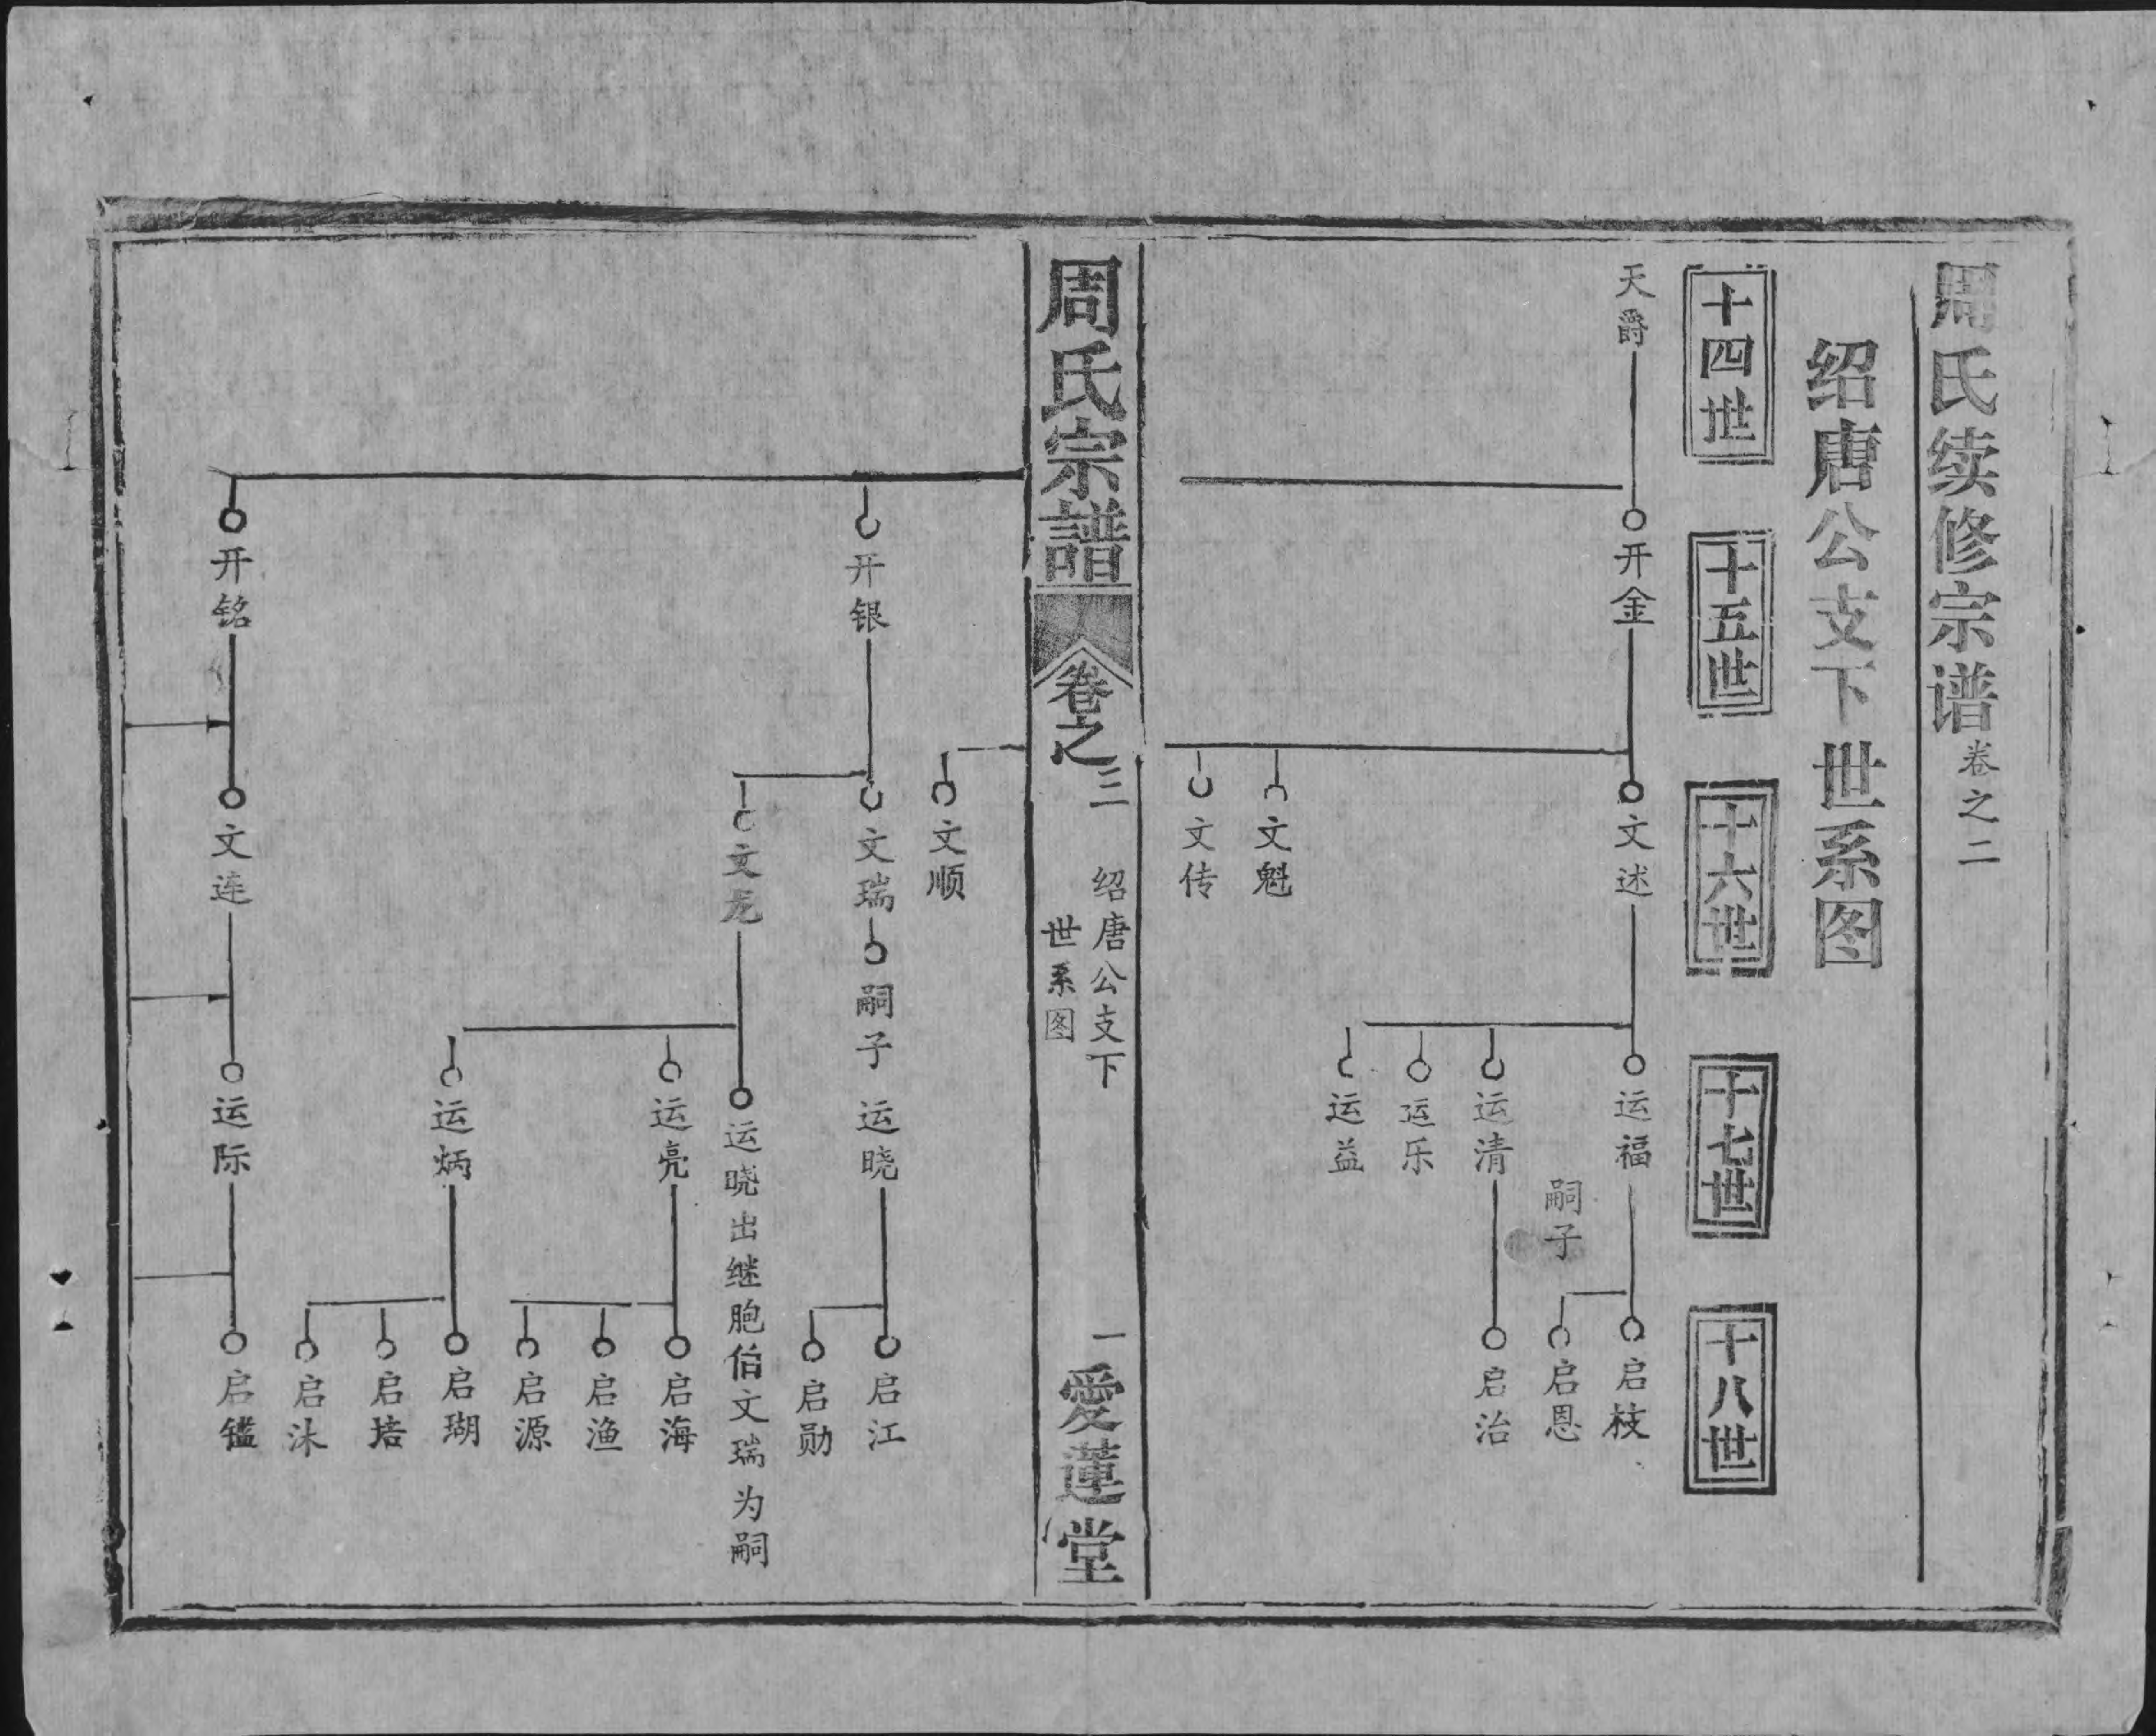 周氏续修宗谱 卷之二
绍唐公支下世系图
十四世
十五世
十六世
十七世
十八世
天爵
开金
文述
运福
启枝
嗣子
启恩
运清
启治
运乐
运益
文魁
文传
周氏宗譜
卷之三
绍唐公支下
世系图
一
愛蓮堂
文顺
开银
文瑞
嗣子
运晓
启江
启勋
文龙
运晓出继胞伯文瑞为嗣
运亮
启海
启渔
启源
运炳
启瑚
启培
启沐
开铭
文连
运际
启镒